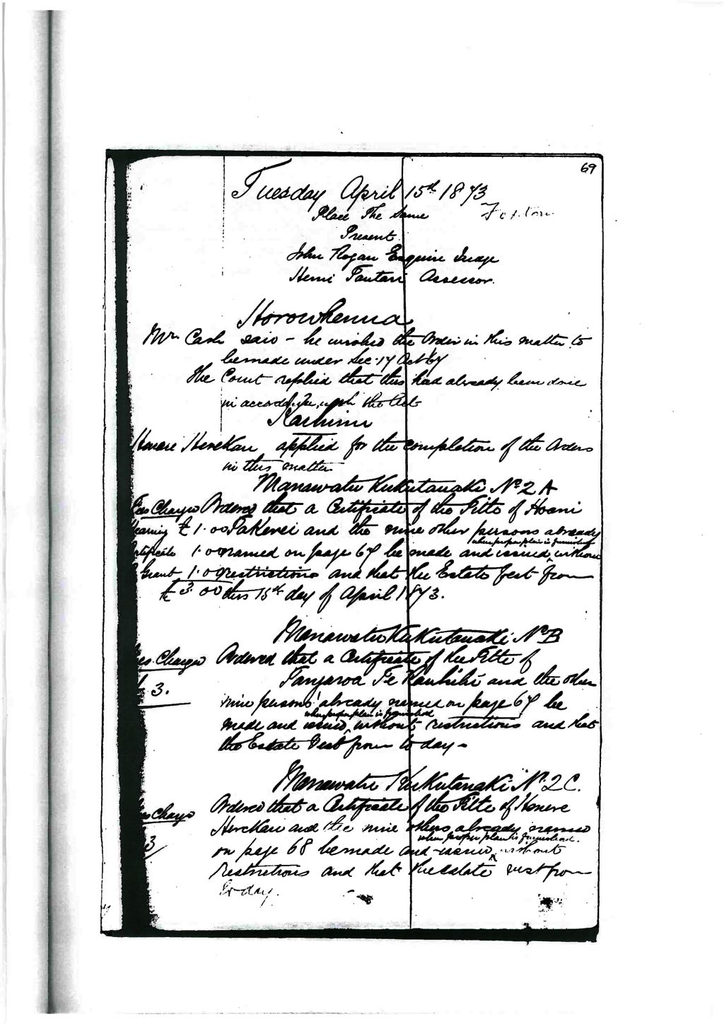 69
Tuesday April 15th 1873
Place The Same Foxton
Present
John Rogan Esquire Judge
Hemi Tautari Assessor.
Horowhenua
Mr. Cash said - he wished the Order in this matter to
be made under Sec. 17 Act 67
The Court replied that this had already been done
in accordance with the Act
Henere Herekau applied for the completion of the Orders
in this matter
Manawatu Kukutauaki No 2 A
Fees Charged Ordered that a Certificate of the Title of Hoani
Hearing £1.0.0 and the nine other persons already
when proper plan is furnished
Certificate 1.0.0 named on page 67 be made and issued without
Grant 1.0.0 restrictions and that the Estate vest from
£3.0.0 this 15th day of April 1873.
Manawatu Kukutauaki No B
Fees Charged Ordered that a Certificate of the Title of
£3. Tangaroa Te and the other
nine persons already named on page 67 be
when proper plan is furnished
made and issued without restrictions and that
the Estate Vest from to day -
Manawatu Kukutauaki No. 2 C.
Fees Charged Ordered that a Certificate of the Title of Henere
Herekau and the nine others already named
when proper plan is furnished.
3 on page 68 be made and issued without
restrictions and that the estate vest from
to day.